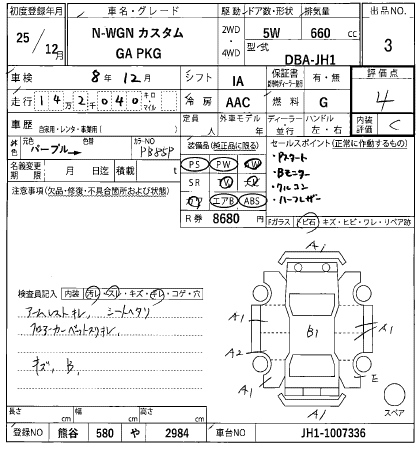 初度登録年月 車名・グレード 駆動 ドア数・形状 排気量 出品NO
25/12月 N-WGN カスタム GA PKG 2WD・4WD 5W 660 cc 3
型式 DBA-JH1
車検 8年12月 シフト IA 保証書 有・無 評価点
走行 142千040 キロ・マイル 冷房 AAC 燃料 G 4
車歴 自家用・レンタ・事業用( ) 定員 人 外車モデル 年 ディーラー・並行 ハンドル 左・右 内装評価 C
外色 元色 パープル→ 色替 カラーNO PB85P
装備品(純正品に限る) セールスポイント(正常に作動するもの)
名義変更期限 月 日迄 積載 t
PS PW AW
SR TV ナビ
カワ エアB ABS
・Pスタート
・Bモニター
・クルコン
・ハーフレザー
注意事項(欠品・修復・不具合箇所および状態)
R券 8680円
Fガラス トビ石・キズ・ヒビ・ワレ・リペア跡
検査員記入 内装 汚レ・スレ・キズ・キレ・コゲ・穴
アームレストキレ, シートヘタリ
キズ, B,
A1
A1 A1
B1
A2
A1 E
A1
スペア
長さ cm 幅 cm 高さ cm
登録NO 熊谷 580 や 2984 車台NO JH1-1007336